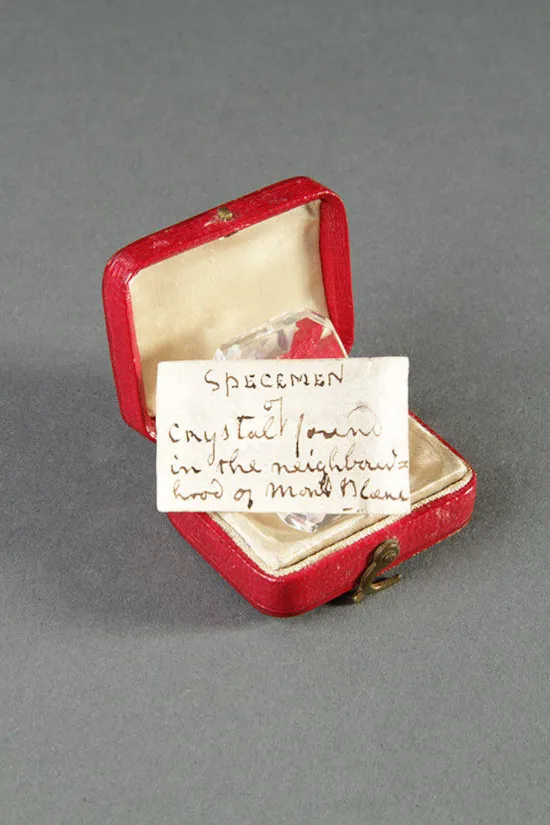 SPECEMEN
of
crystal found
in the neighbour=
hood of Mont Blanc